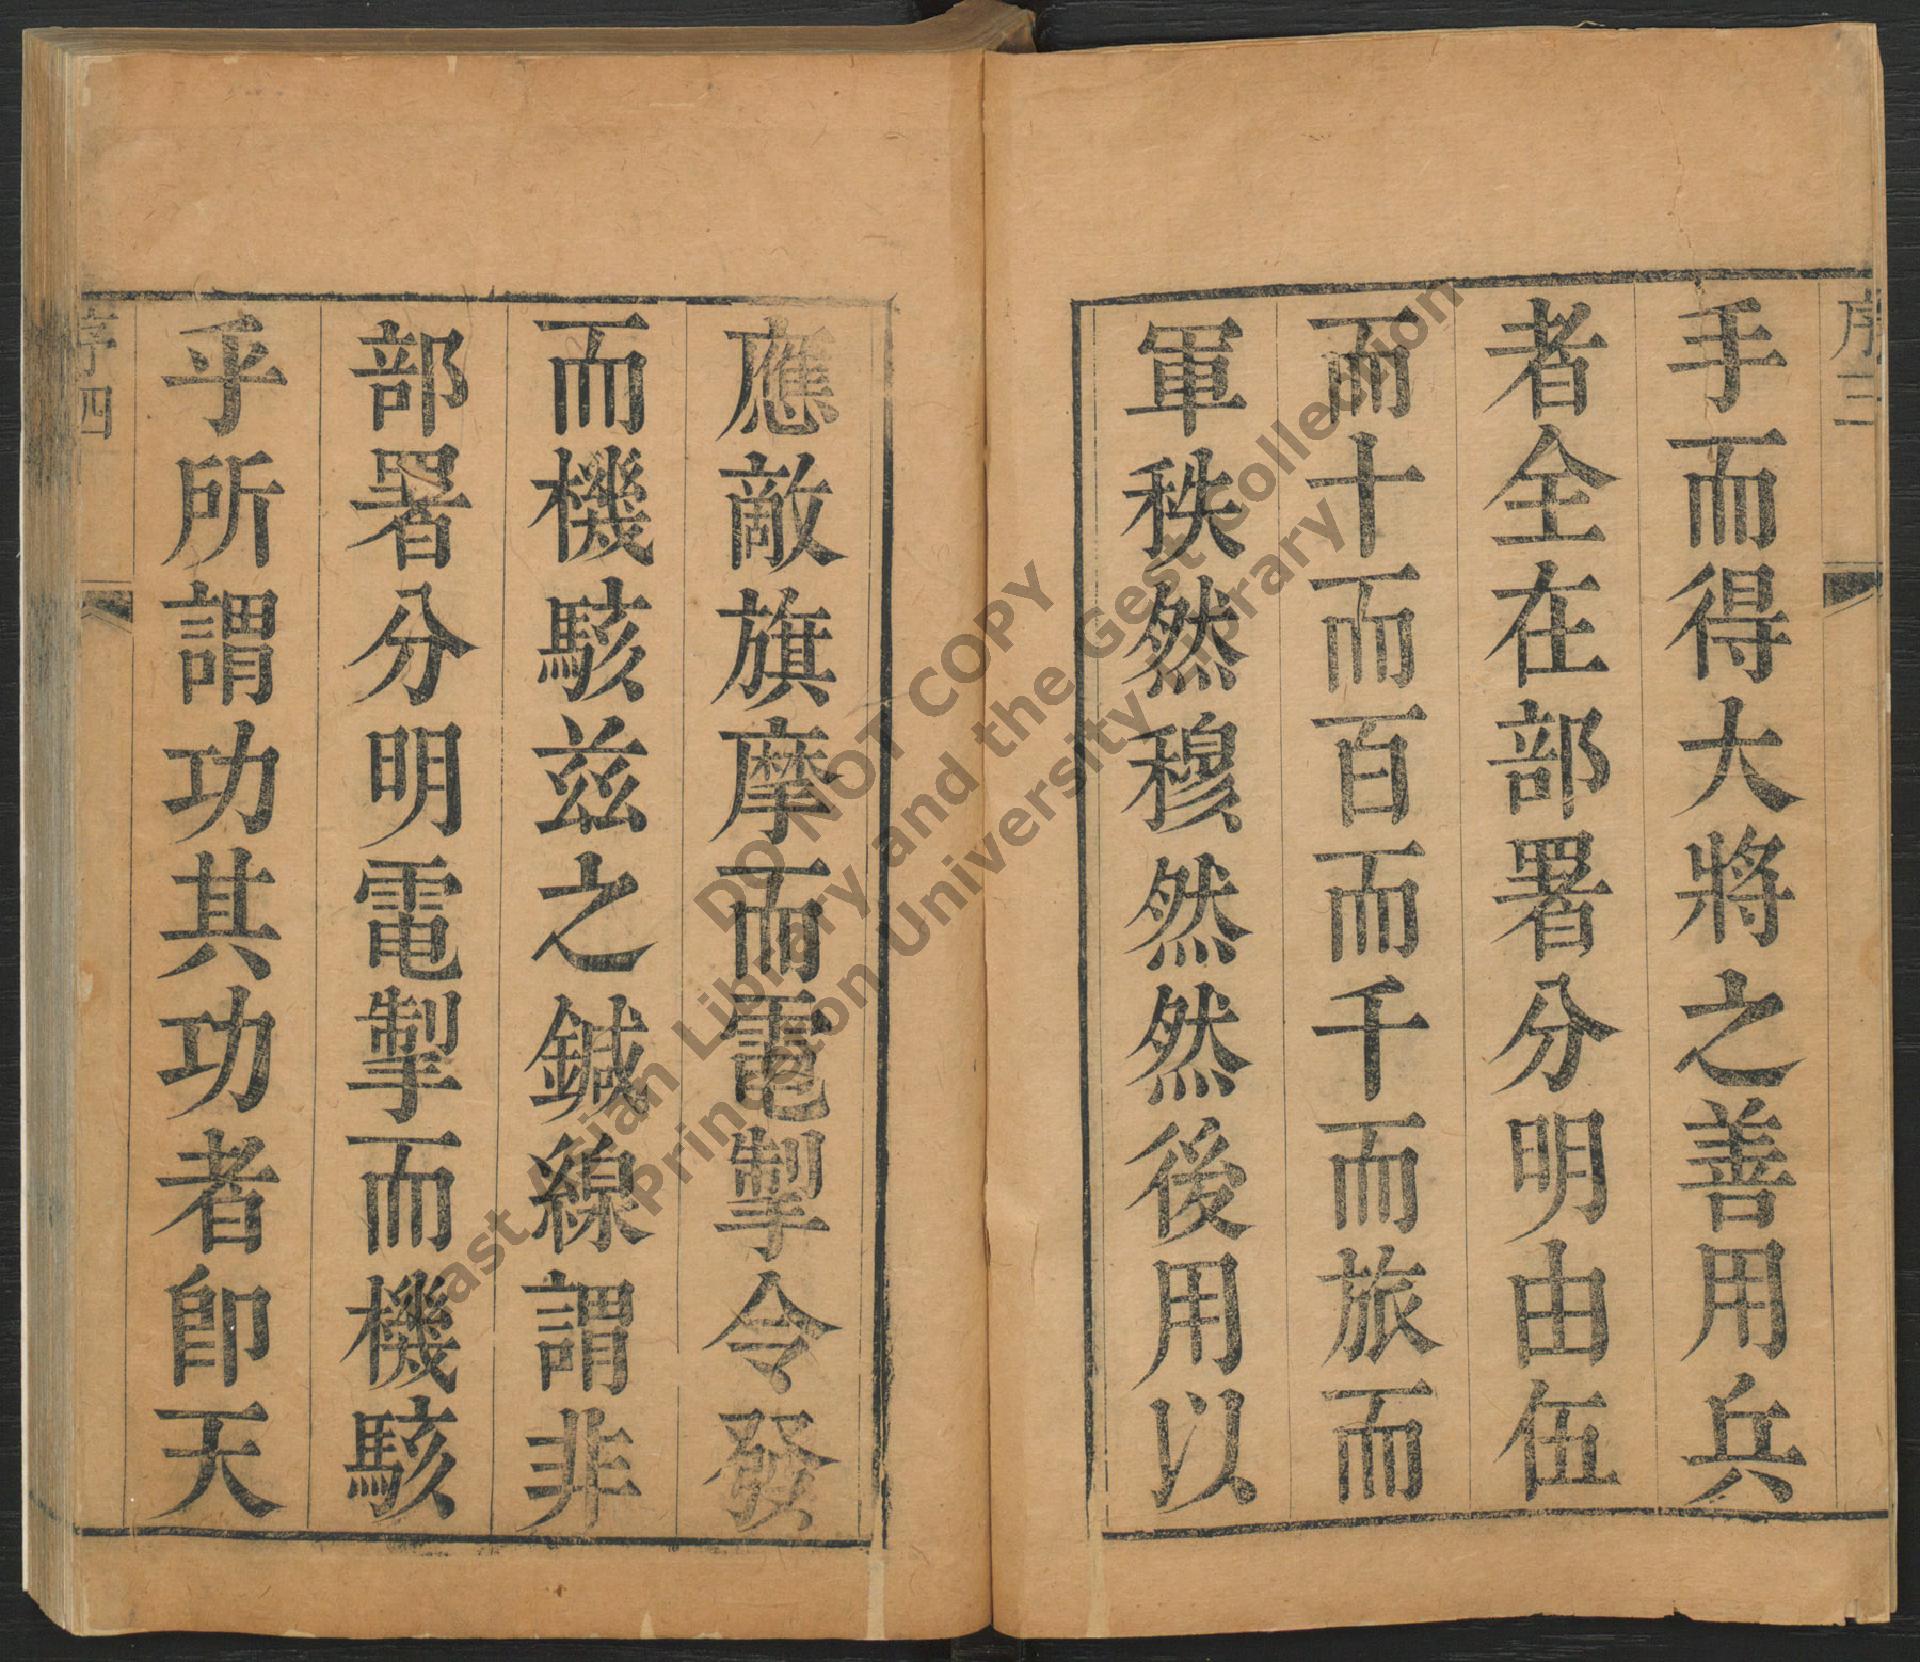 序三
手而得大將之善用兵
者全在部署分明由伍
而十而百而千而旅而
軍秩然穆然然後用以
應敵旗摩而電掣令發
而機駭茲之鍼線謂非
部署分明電掣而機駭
乎所謂功其功者卽天
序四
DO NOT COPY
East Asian Library and the Gest Collection
Princeton University Library